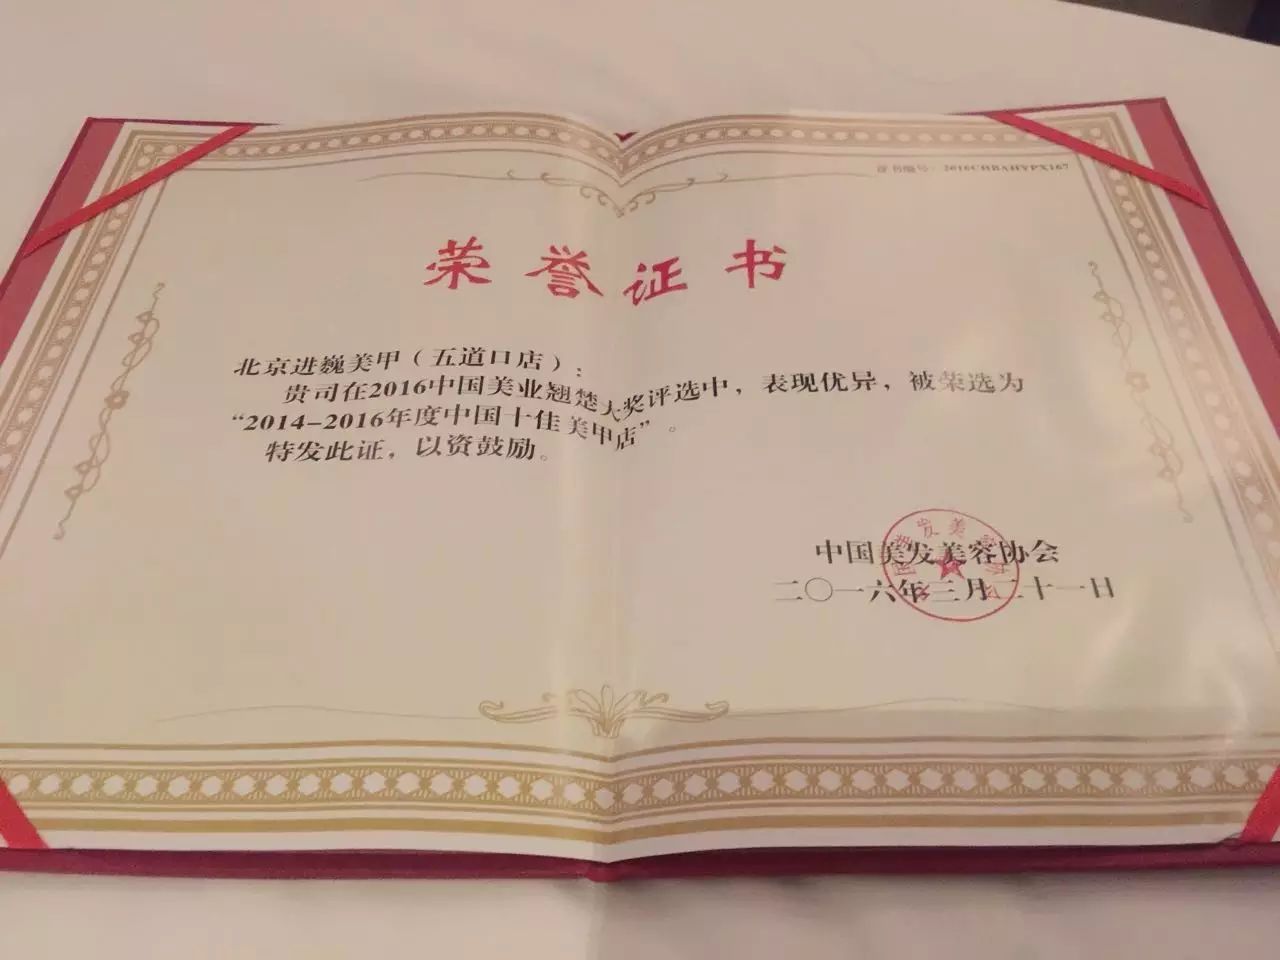 证书编号：2016CHBAHYPX167
荣誉证书
北京进巍美甲（五道口店）：
贵司在2016中国美业翘楚大奖评选中，表现优异，被荣选为
“2014-2016年度中国十佳美甲店”。
特发此证，以资鼓励。
中国美发美容协会
二〇一六年三月二十一日